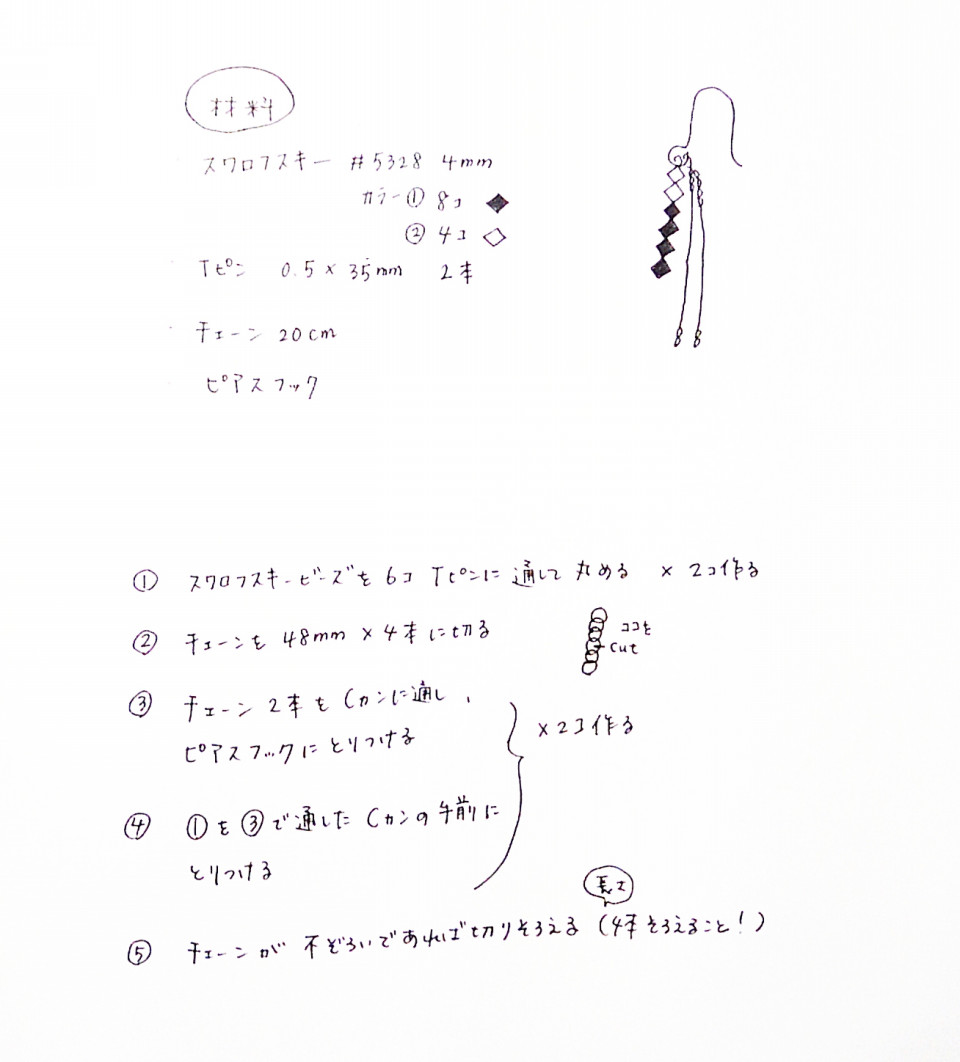 材料
スワロフスキー #5328 4mm
カラー① 8コ ◆
② 4コ ◇
Tピン 0.5×35mm 2本
チェーン 20cm
ピアスフック
① スワロフスキービーズを6コ Tピンに通して丸める ×2コ作る
② チェーンを48mm×4本に切る
ココを
cut
③ チェーン2本をCカンに通し、
ピアスフックにとりつける
×2コ作る
④ ①を③で通したCカンの手前に
とりつける
長さ
⑤ チェーンが不ぞろいであれば切りそろえる (4本そろえること!)